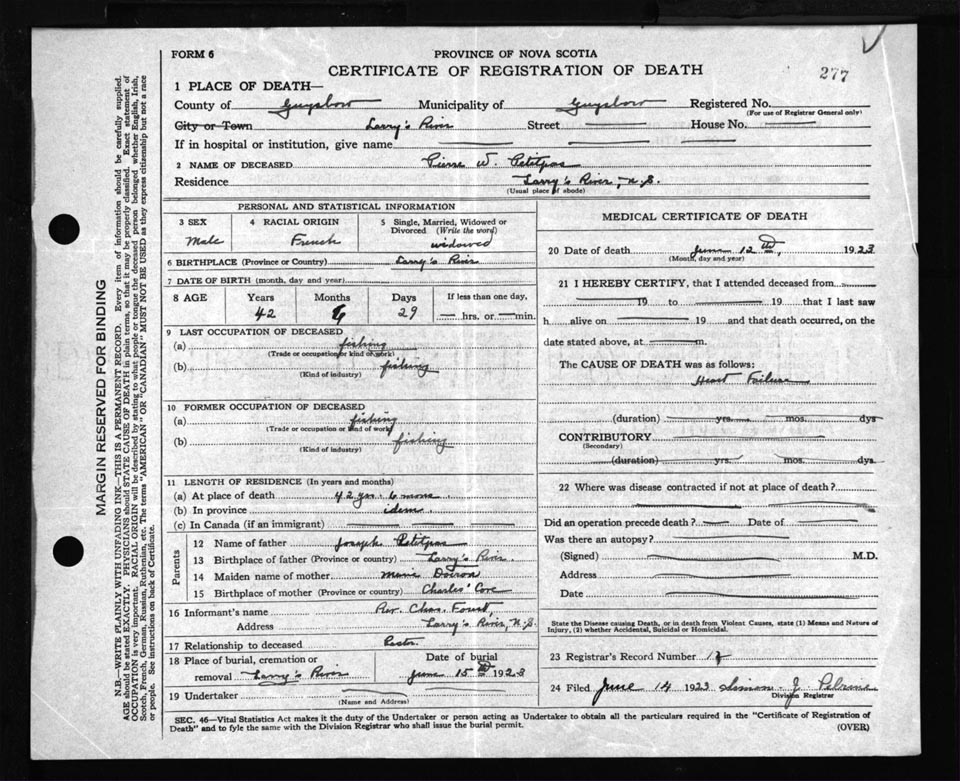 FORM 6
PROVINCE OF NOVA SCOTIA
CERTIFICATE OF REGISTRATION OF DEATH
277
1 PLACE OF DEATH—
County of Guysboro Municipality of Guysboro Registered No.
(For use of Registrar General only)
City or Town Larry's River Street House No.
If in hospital or institution, give name
2 NAME OF DECEASED Pierre W. Petitpas
Residence Larry's River, N.S.
(Usual place of abode)
PERSONAL AND STATISTICAL INFORMATION
3 SEX 4 RACIAL ORIGIN 5 Single, Married, Widowed or Divorced (Write the word)
Male French widowed
6 BIRTHPLACE (Province or Country) Larry's River
7 DATE OF BIRTH (month, day and year)
8 AGE Years Months Days If less than one day,
42 6 29 hrs. or min.
9 LAST OCCUPATION OF DECEASED
(a) fishing
(Trade or occupation or kind of work)
(b) fishing
(Kind of industry)
10 FORMER OCCUPATION OF DECEASED
(a) fishing
(Trade or occupation or kind of work)
(b) fishing
(Kind of industry)
11 LENGTH OF RESIDENCE (In years and months)
(a) At place of death 42 yrs. 6 mons.
(b) In province idem
(c) In Canada (if an immigrant)
Parents
12 Name of father Joseph Petitpas
13 Birthplace of father (Province or country) Larry's River.
14 Maiden name of mother Marie Doiron
15 Birthplace of mother (Province or country) Charles' Cove
16 Informant's name Rev. Chas. Forest,
Address Larry's River, N.S.
17 Relationship to deceased Rector
18 Place of burial, cremation or removal Larry's River
Date of burial June 15th 1923
19 Undertaker
(Name and Address)
MEDICAL CERTIFICATE OF DEATH
20 Date of death June 12th, 1923
(Month, day and year)
21 I HEREBY CERTIFY, that I attended deceased from
19 to 19 that I last saw
h alive on 19 and that death occurred, on the
date stated above, at m.
The CAUSE OF DEATH was as follows:
Heart Failure
(duration) yrs. mos. dys
CONTRIBUTORY
(Secondary)
(duration) yrs. mos. dys.
22 Where was disease contracted if not at place of death?
Did an operation precede death? Date of
Was there an autopsy?
(Signed) M.D.
Address
Date
State the Disease causing Death, or in death from Violent Causes, state (1) Means and Nature of
Injury, (2) whether Accidental, Suicidal or Homicidal.
23 Registrar's Record Number
24 Filed June 14 1923 Simon J. Pelrine
Division Registrar
SEC. 46—Vital Statistics Act makes it the duty of the Undertaker or person acting as Undertaker to obtain all the particulars required in the "Certificate of Registration of
Death" and to fyle the same with the Division Registrar who shall issue the burial permit.
(OVER)
MARGIN RESERVED FOR BINDING
N.B.—WRITE PLAINLY WITH UNFADING INK—THIS IS A PERMANENT RECORD. Every item of information should be carefully supplied.
AGE should be stated EXACTLY. PHYSICIANS should STATE CAUSE OF DEATH in plain terms, so that it may be properly classified. Exact statement of
OCCUPATION is very important. RACIAL ORIGIN will be described by stating to what people or tongue the deceased person belonged whether English, Irish,
Scotch, French, German, Russian, Ruthenian, etc. The terms "AMERICAN" OR "CANADIAN" MUST NOT BE USED as they express citizenship but not a race
or people. See instructions on back of Certificate.